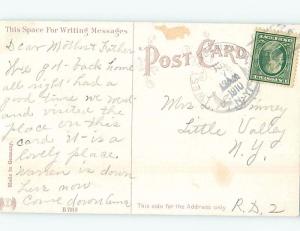 This Space For Writing Messages
POST CARD
Dear Mother & Father
We got back home
all right had a
good time we went
and visited the
place on this
card it is a
lovely place.
Warren is down
here now
Come down
Made in Germany.
B 7910
Mrs
Little Valley
N.Y.
R.D. 2
This side for the Address only
1910